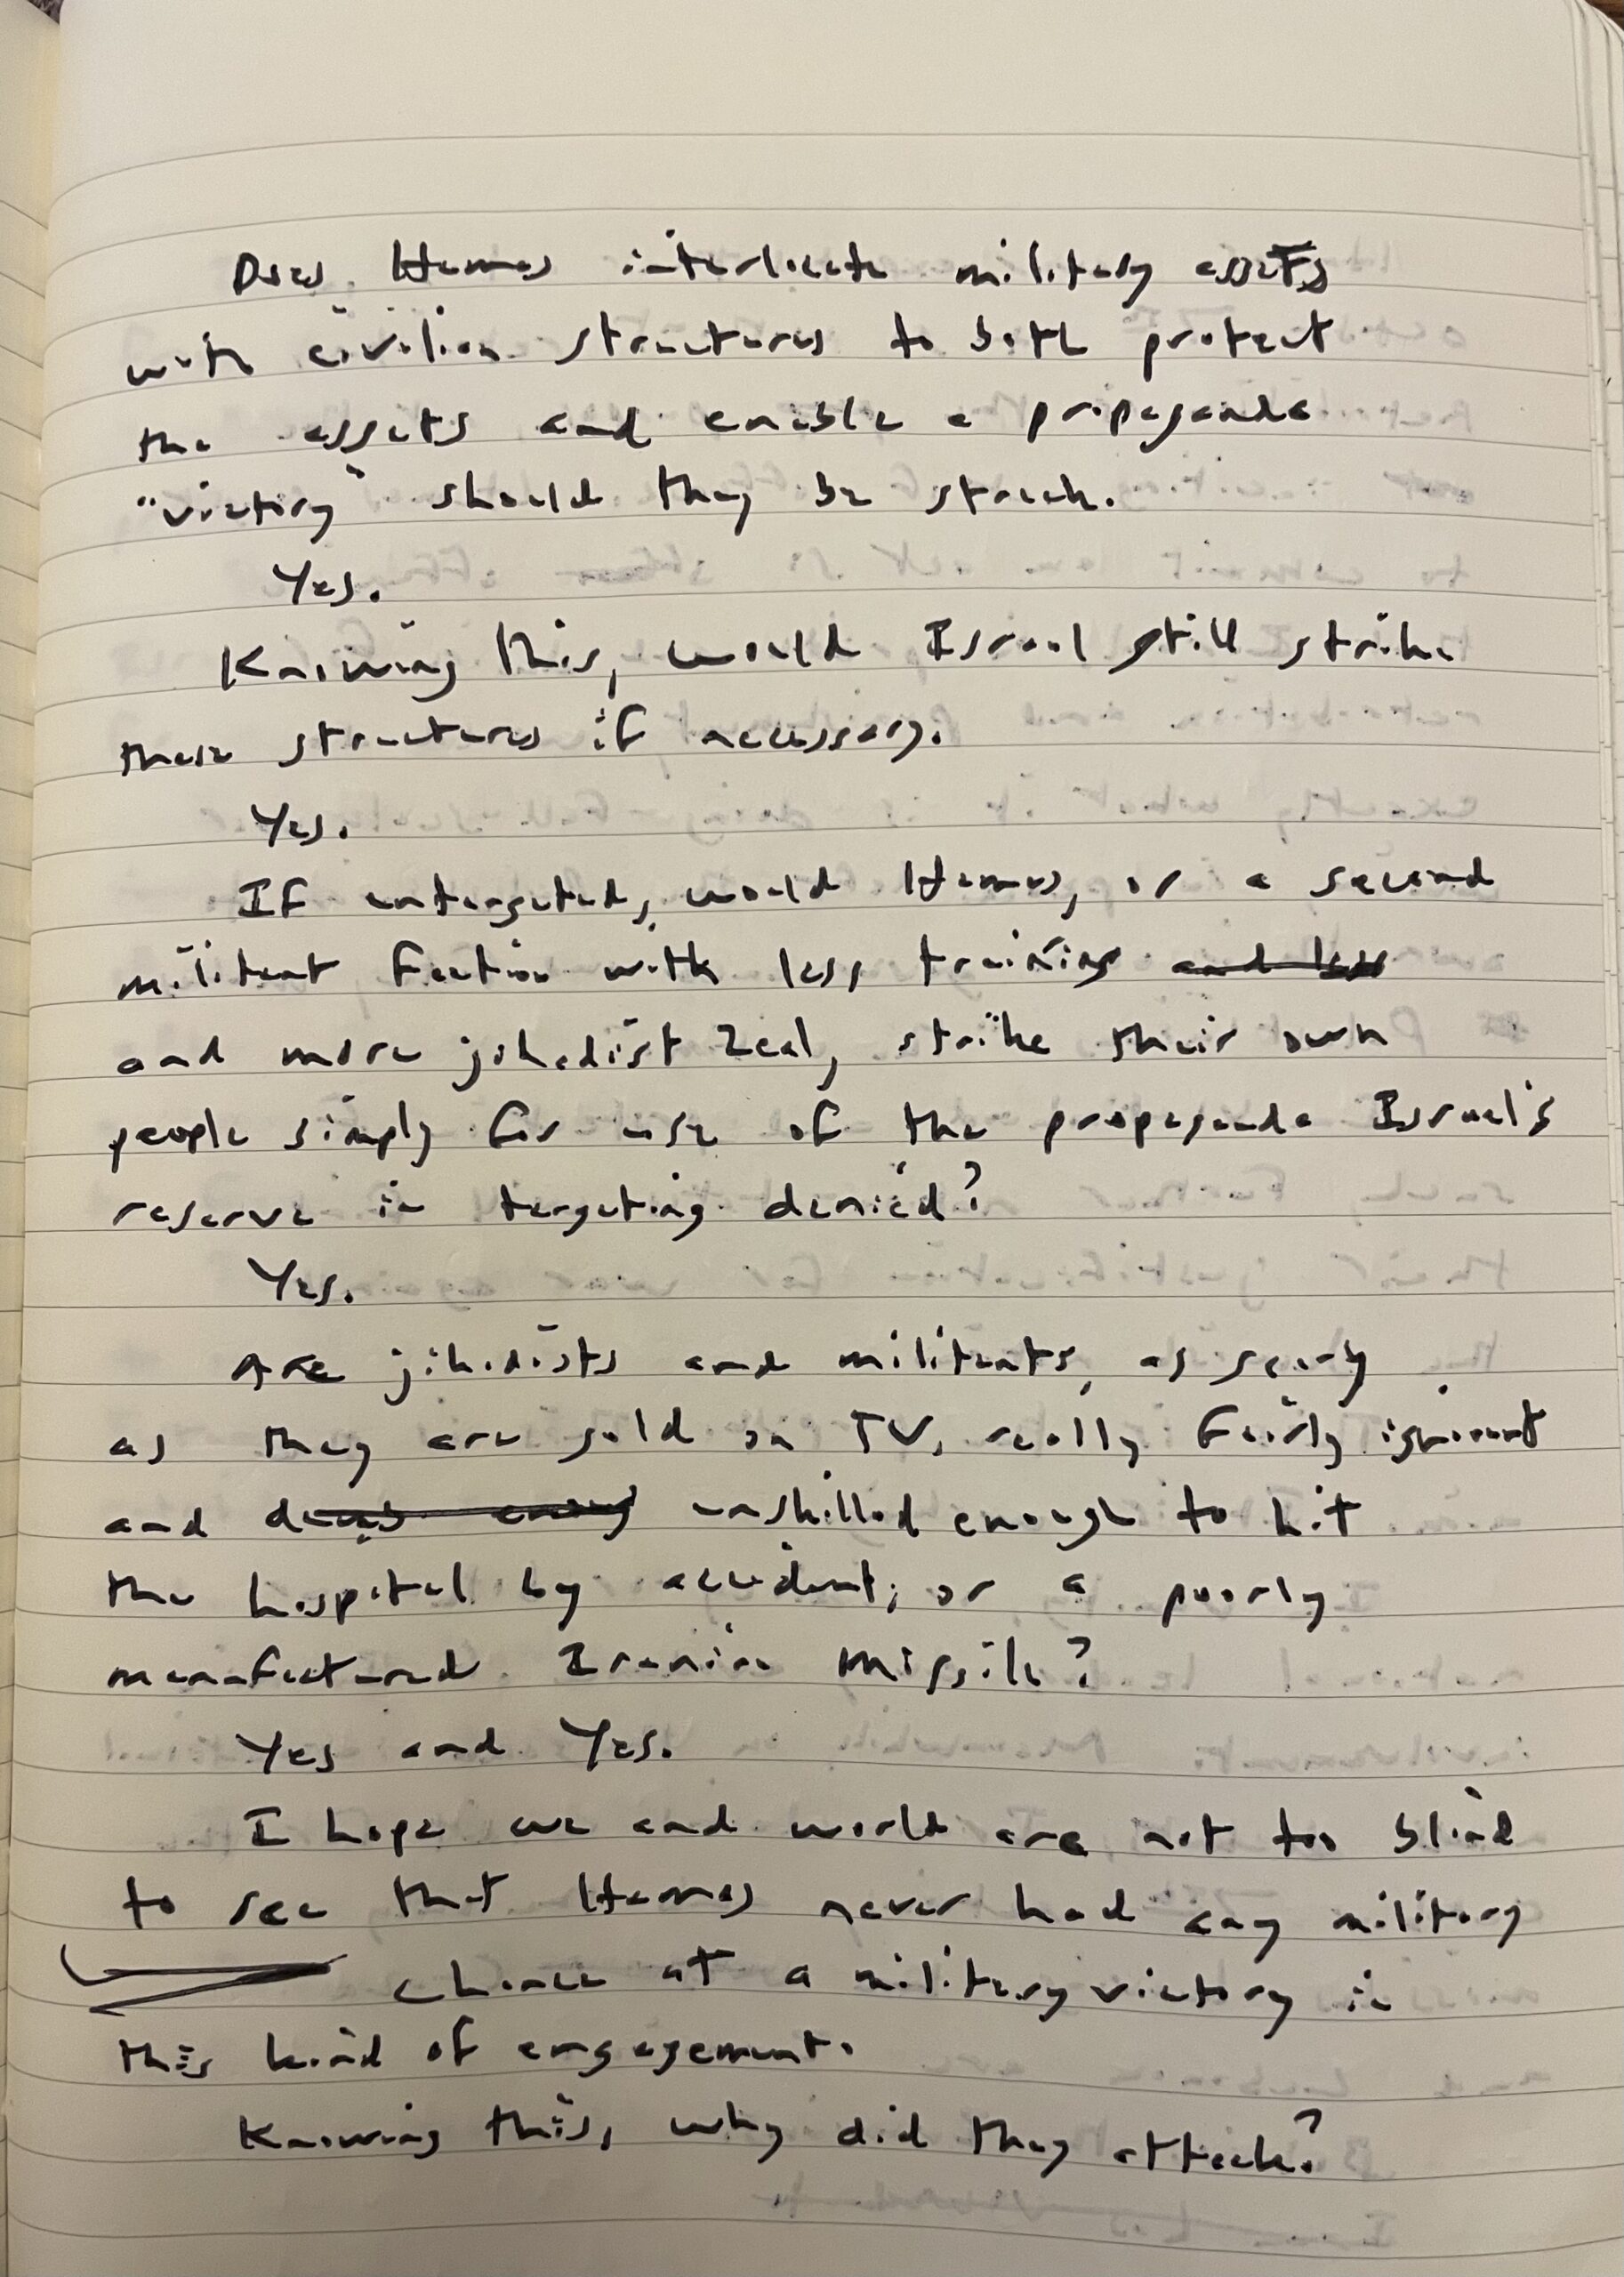 Does Hamas interlocate military assets
with civilian structures to both protect
the assets and enable a propaganda
"victory" should they be struck.
Yes.
Knowing this, would Israel still strike
these structures if necessary.
Yes.
If untargeted, would Hamas, or a second
militant faction with less training and less
and more jihadist zeal, strike their own
people simply for use of the propaganda Israel's
reserve in targeting denied?
Yes.
Are jihadists and militants, as scary
as they are sold on TV, really fairly ignorant
and unskilled enough to hit
the hospital by accident; or a poorly
manufactured Iranian missile?
Yes and Yes.
I hope we and world are not too blind
to see that Hamas never had any military
chance at a military victory in
this kind of engagement.
Knowing this, why did they attack?